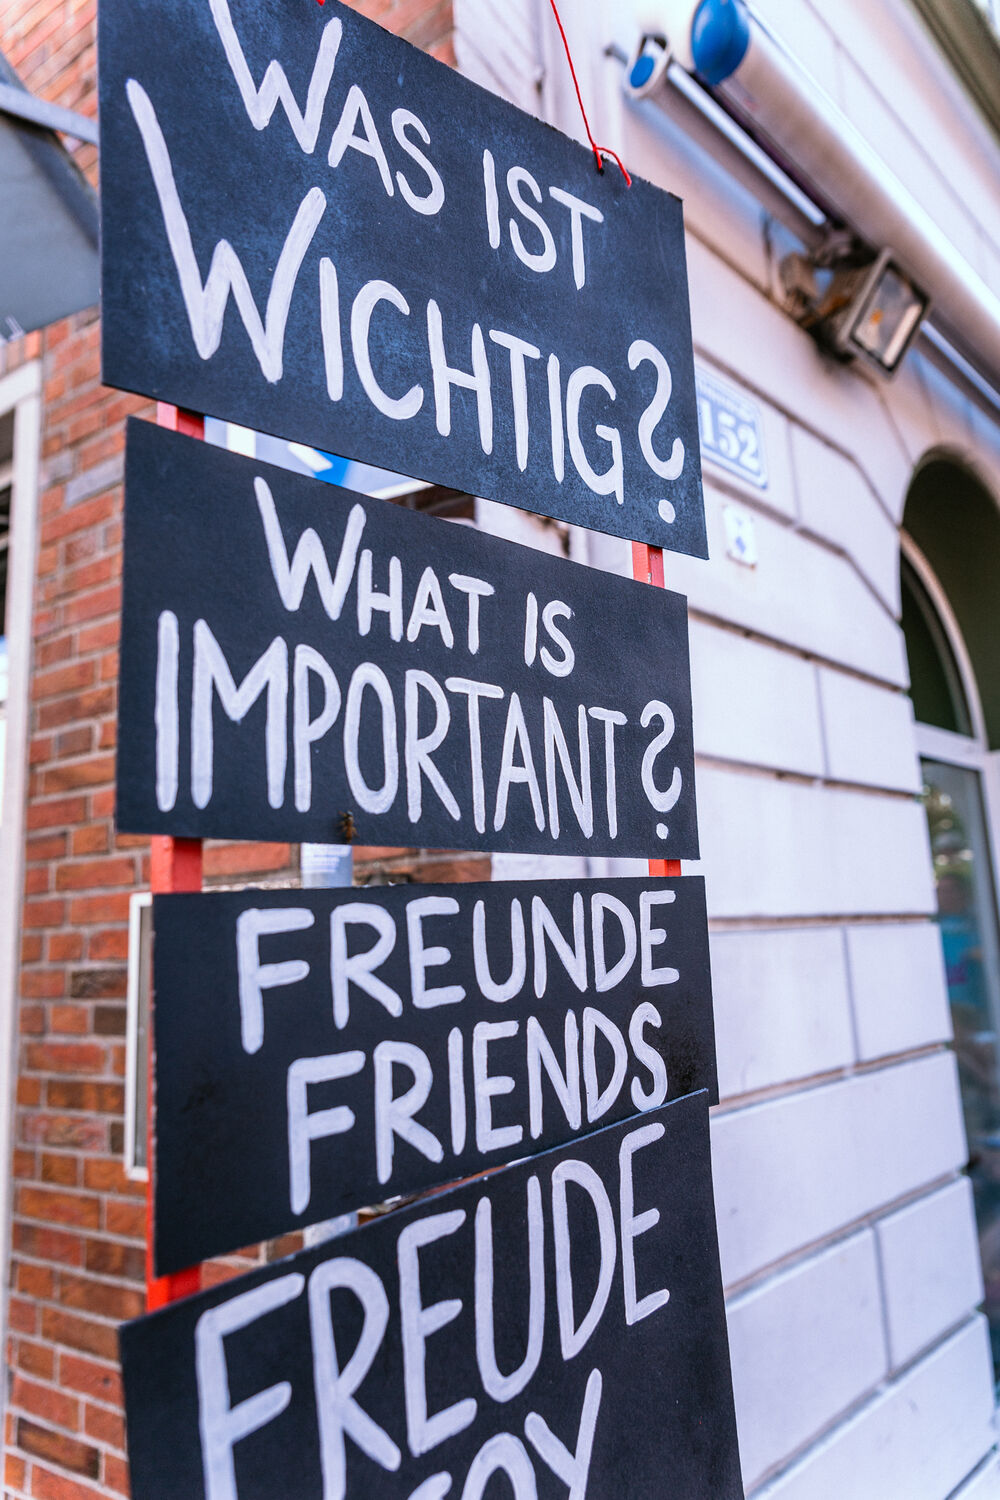 WAS IST
WICHTIG?
152
WHAT IS
IMPORTANT?
FREUNDE
FRIENDS
FREUDE
JOY